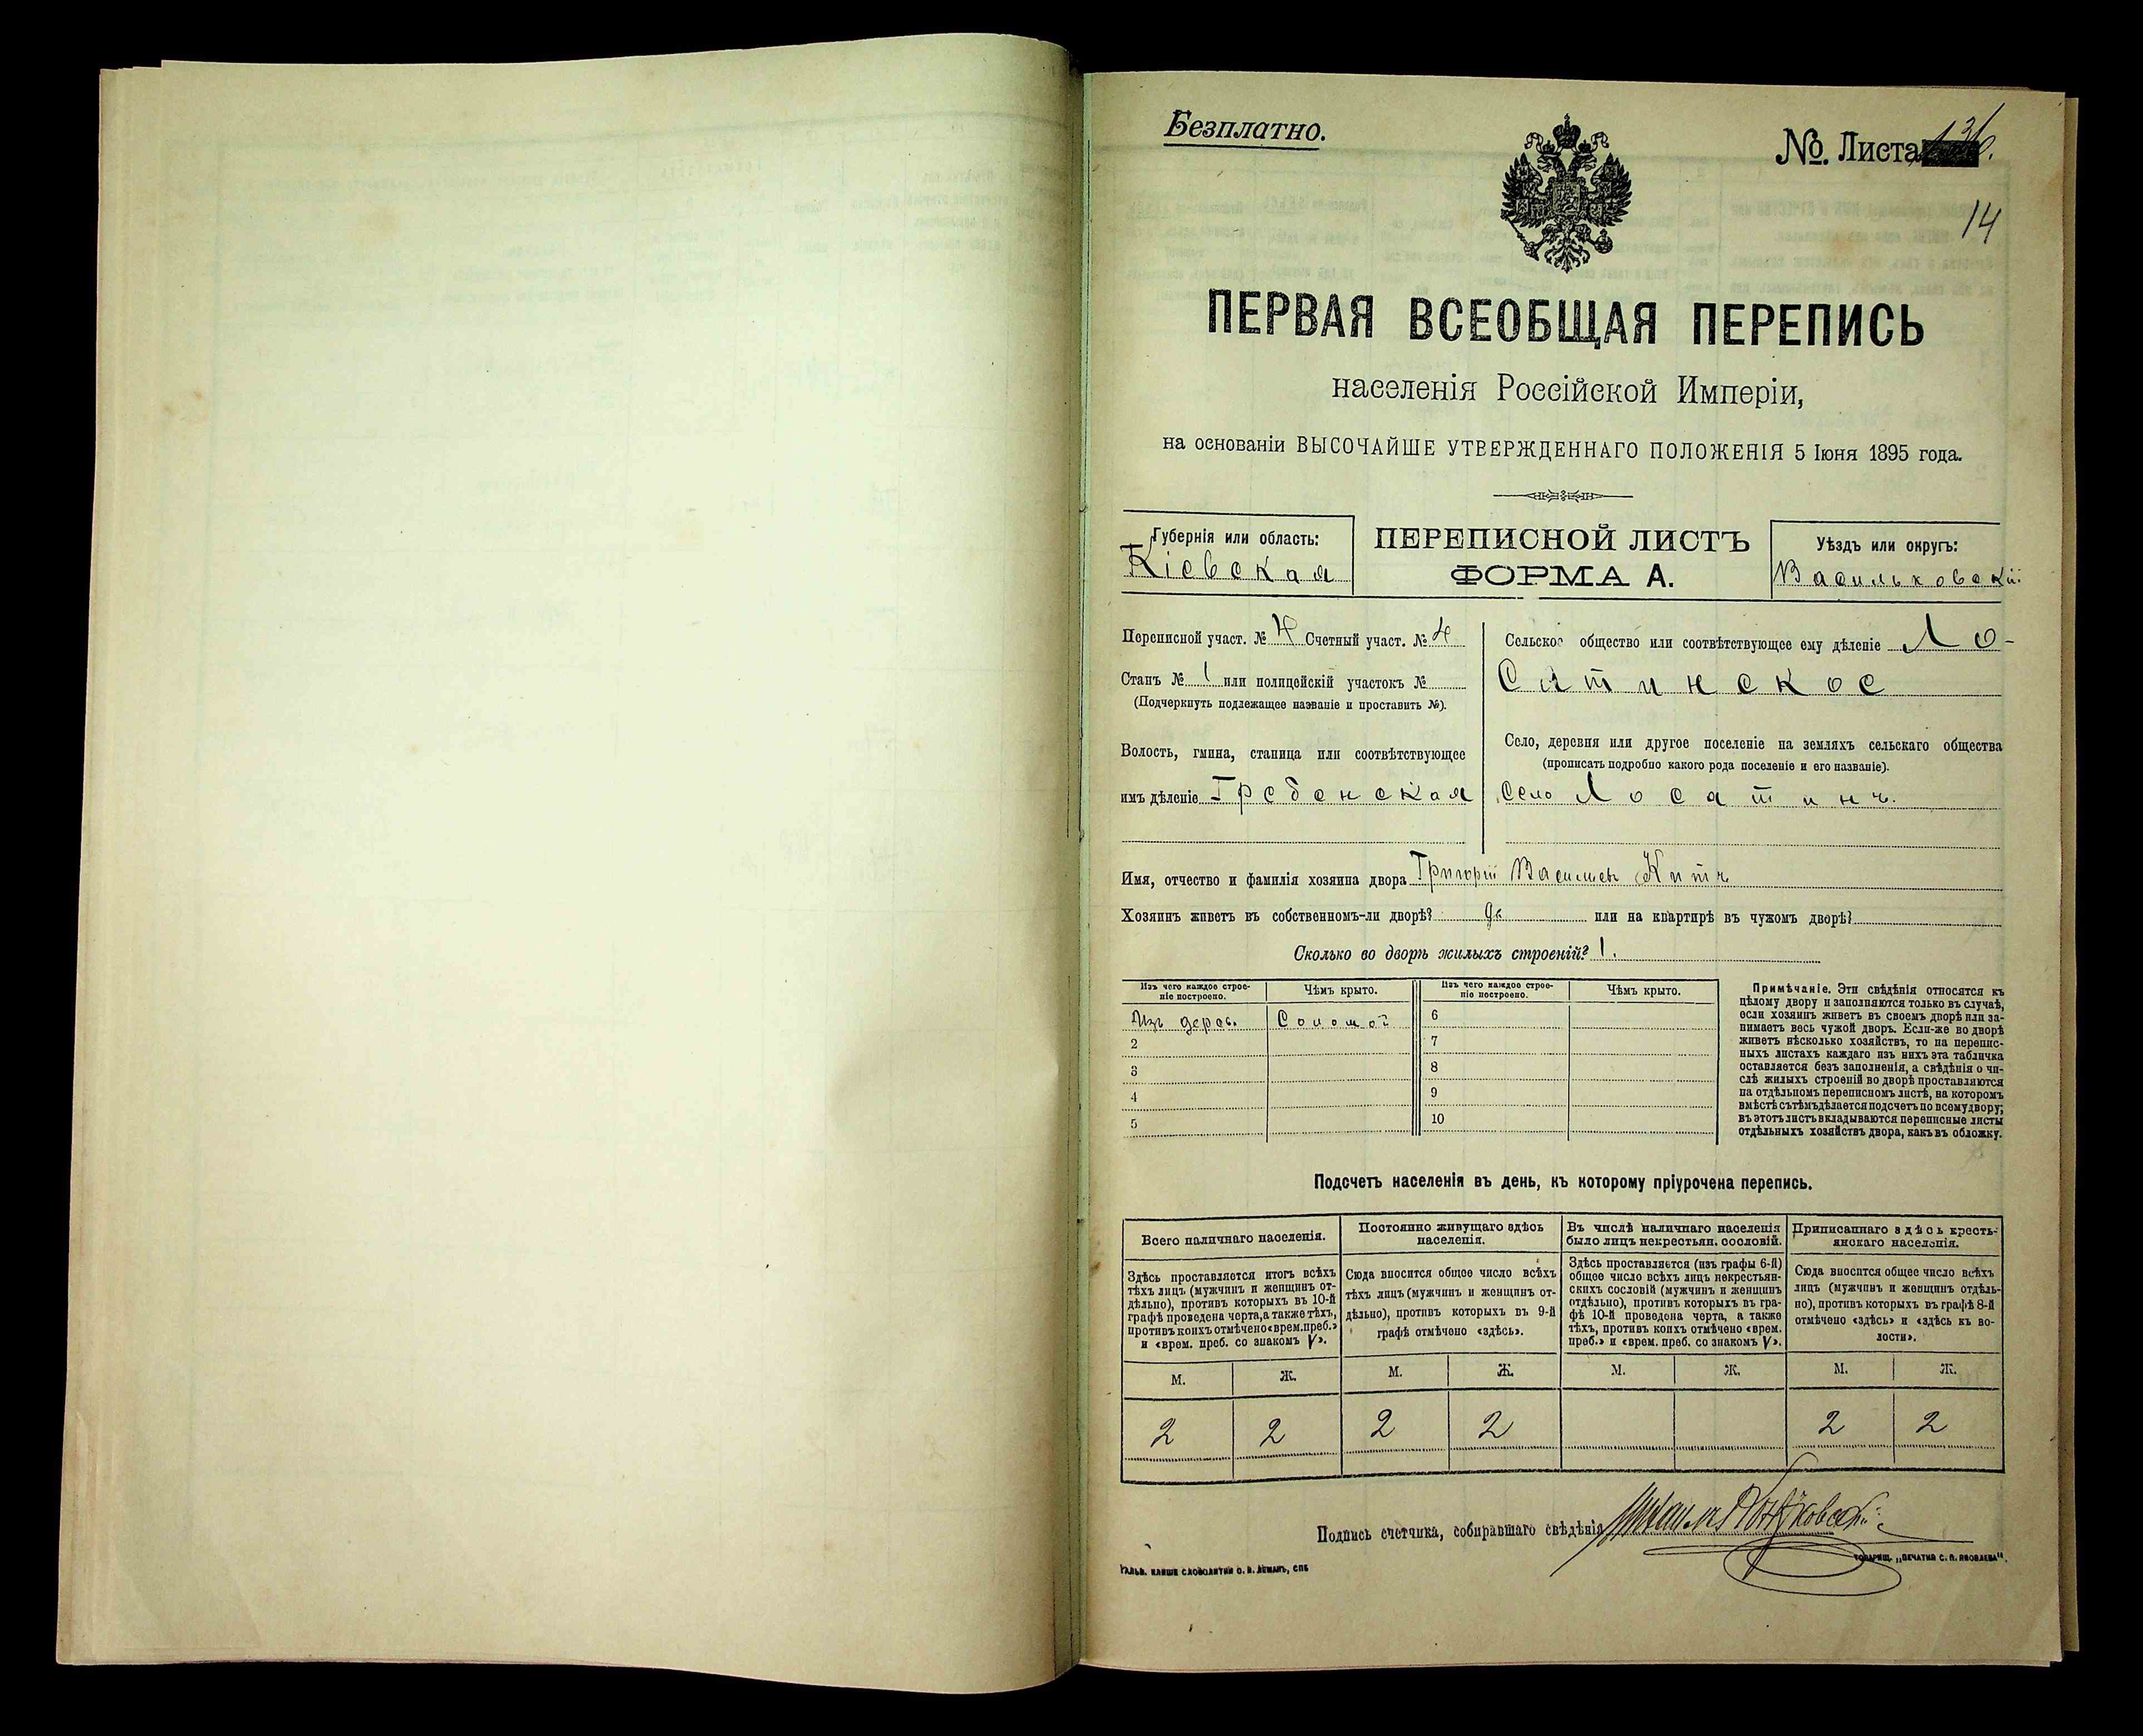 Безплатно.
№. Листа
14
ПЕРВАЯ ВСЕОБЩАЯ ПЕРЕПИСЬ
населенія Россійской Имперіи,
на основаніи ВЫСОЧАЙШЕ УТВЕРЖДЕННАГО ПОЛОЖЕНІЯ 5 Іюня 1895 года.
Губернія или область:
Кіевская
ПЕРЕПИСНОЙ ЛИСТЪ
ФОРМА А.
Уѣздъ или округъ:
Васильковскій
Переписной участ. № 4 Счетный участ. № 4
Станъ № 1 или полицейскій участокъ №
(Подчеркнуть подлежащее названіе и проставить №).
Волость, гмина, станица или соотвѣтствующее
имъ дѣленіе Гребенская
Сельское общество или соотвѣтствующее ему дѣленіе Ло-
Сятинское
Село, деревня или другое поселеніе на земляхъ сельскаго общества
(прописать подробно какого рода поселеніе и его названіе).
село Лосятинъ
Имя, отчество и фамилія хозяина двора Григорій Васильевъ Китъ
Хозяинъ живетъ въ собственномъ-ли дворѣ? да или на квартирѣ въ чужомъ дворѣ?
Сколько во дворѣ жилыхъ строеній? 1.
Изъ чего каждое строе-
ніе построено.
Чѣмъ крыто.
Изъ чего каждое строе-
ніе построено.
Чѣмъ крыто.
Изъ дерев. Соломой 6
2 7
3 8
4 9
5 10
Примѣчаніе. Эти свѣдѣнія относятся къ
цѣлому двору и заполняются только въ случаѣ,
если хозяинъ живетъ въ своемъ дворѣ или за-
нимаетъ весь чужой дворъ. Если-же во дворѣ
живетъ нѣсколько хозяйствъ, то на перепис-
ныхъ листахъ каждаго изъ нихъ эта табличка
оставляется безъ заполненія, а свѣдѣнія о чи-
слѣ жилыхъ строеній во дворѣ проставляются
на отдѣльномъ переписномъ листѣ, на которомъ
вмѣстѣ съ тѣмъ дѣлается подсчетъ по всему двору;
въ этотъ листъ вкладываются переписные листы
отдѣльныхъ хозяйствъ двора, какъ въ обложку.
Подсчетъ населенія въ день, къ которому пріурочена перепись.
Всего наличнаго населенія.
Здѣсь проставляется итогъ всѣхъ
тѣхъ лицъ (мужчинъ и женщинъ от-
дѣльно), противъ которыхъ въ 10-й
графѣ проведена черта, а также тѣхъ,
противъ коихъ отмѣчено «врем. преб.»
и «врем. преб. со знакомъ V».
Постоянно живущаго здѣсь
населенія.
Сюда вносится общее число всѣхъ
тѣхъ лицъ (мужчинъ и женщинъ от-
дѣльно), противъ которыхъ въ 9-й
графѣ отмѣчено «здѣсь».
Въ числѣ наличнаго населенія
было лицъ некрестьян. сословій.
Здѣсь проставляется (изъ графы 6-й)
общее число всѣхъ лицъ некрестьян-
скихъ сословій (мужчинъ и женщинъ
отдѣльно), противъ которыхъ въ гра-
фѣ 10-й проведена черта, а также
тѣхъ, противъ коихъ отмѣчено «врем.
преб.» и «врем. преб. со знакомъ V».
Приписаннаго здѣсь кресть-
янскаго населенія.
Сюда вносится общее число всѣхъ
лицъ (мужчинъ и женщинъ отдѣль-
но), противъ которыхъ въ графѣ 8-й
отмѣчено «здѣсь» и «здѣсь къ во-
лости».
М. Ж. М. Ж. М. Ж. М. Ж.
2 2 2 2 2 2
Подпись счетчика, собиравшаго свѣдѣнія
ГАЛЬВ. КЛИШЕ СЛОВОЛИТНИ О. И. ЛЕМАНЪ, СПБ
ТОВАРИЩ. „ПЕЧАТНЯ С. П. ЯКОВЛЕВА“.